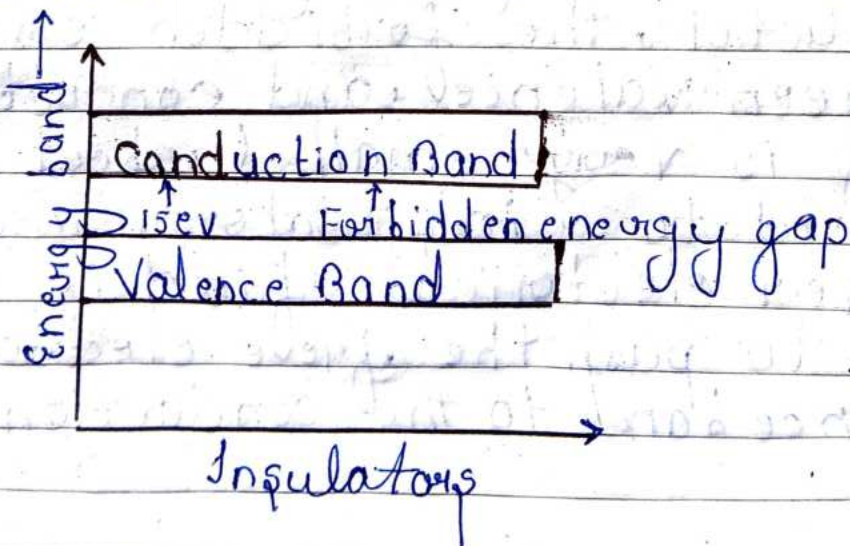 Energy band
Conduction Band
15ev Forbidden energy gap
Valence Band
Insulators